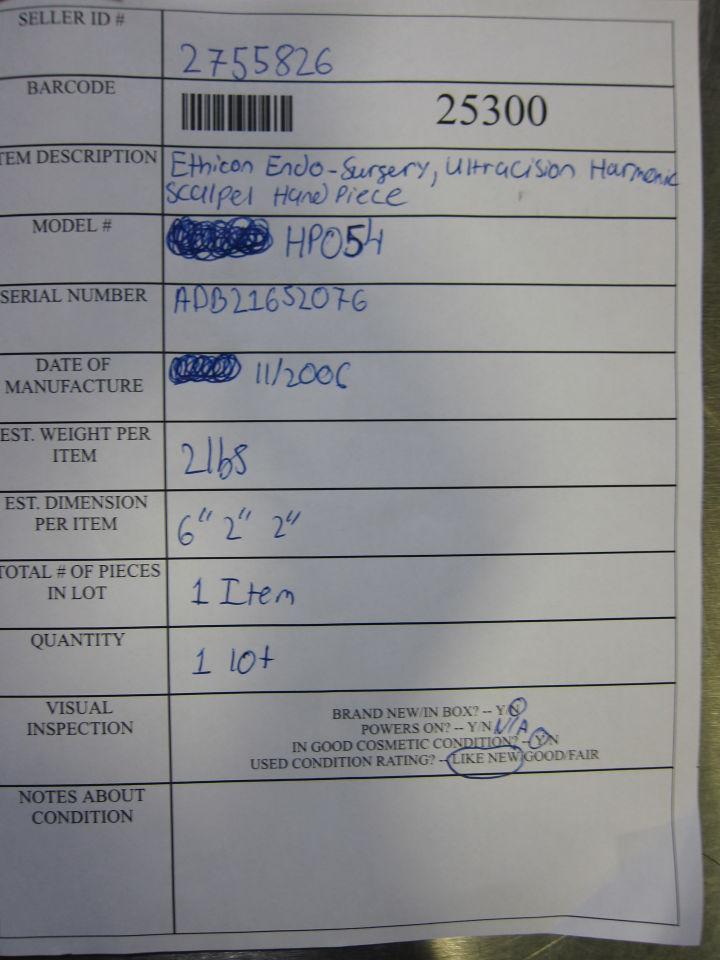 SELLER ID #
2755826
BARCODE
25300
TEM DESCRIPTION
Ethicon Endo-Surgery, Ultracision Harmonic
Scalpel Hand Piece
MODEL #
HP054
SERIAL NUMBER
ADB21652076
DATE OF
MANUFACTURE
11/2006
EST. WEIGHT PER
ITEM
2lbs
EST. DIMENSION
PER ITEM
6" 2" 2"
TOTAL # OF PIECES
IN LOT
1 Item
QUANTITY
1 lot
VISUAL
INSPECTION
BRAND NEW/IN BOX? -- Y/N
POWERS ON? -- Y/N N/A
IN GOOD COSMETIC CONDITION? -- Y/N
USED CONDITION RATING? -- LIKE NEW/GOOD/FAIR
NOTES ABOUT
CONDITION